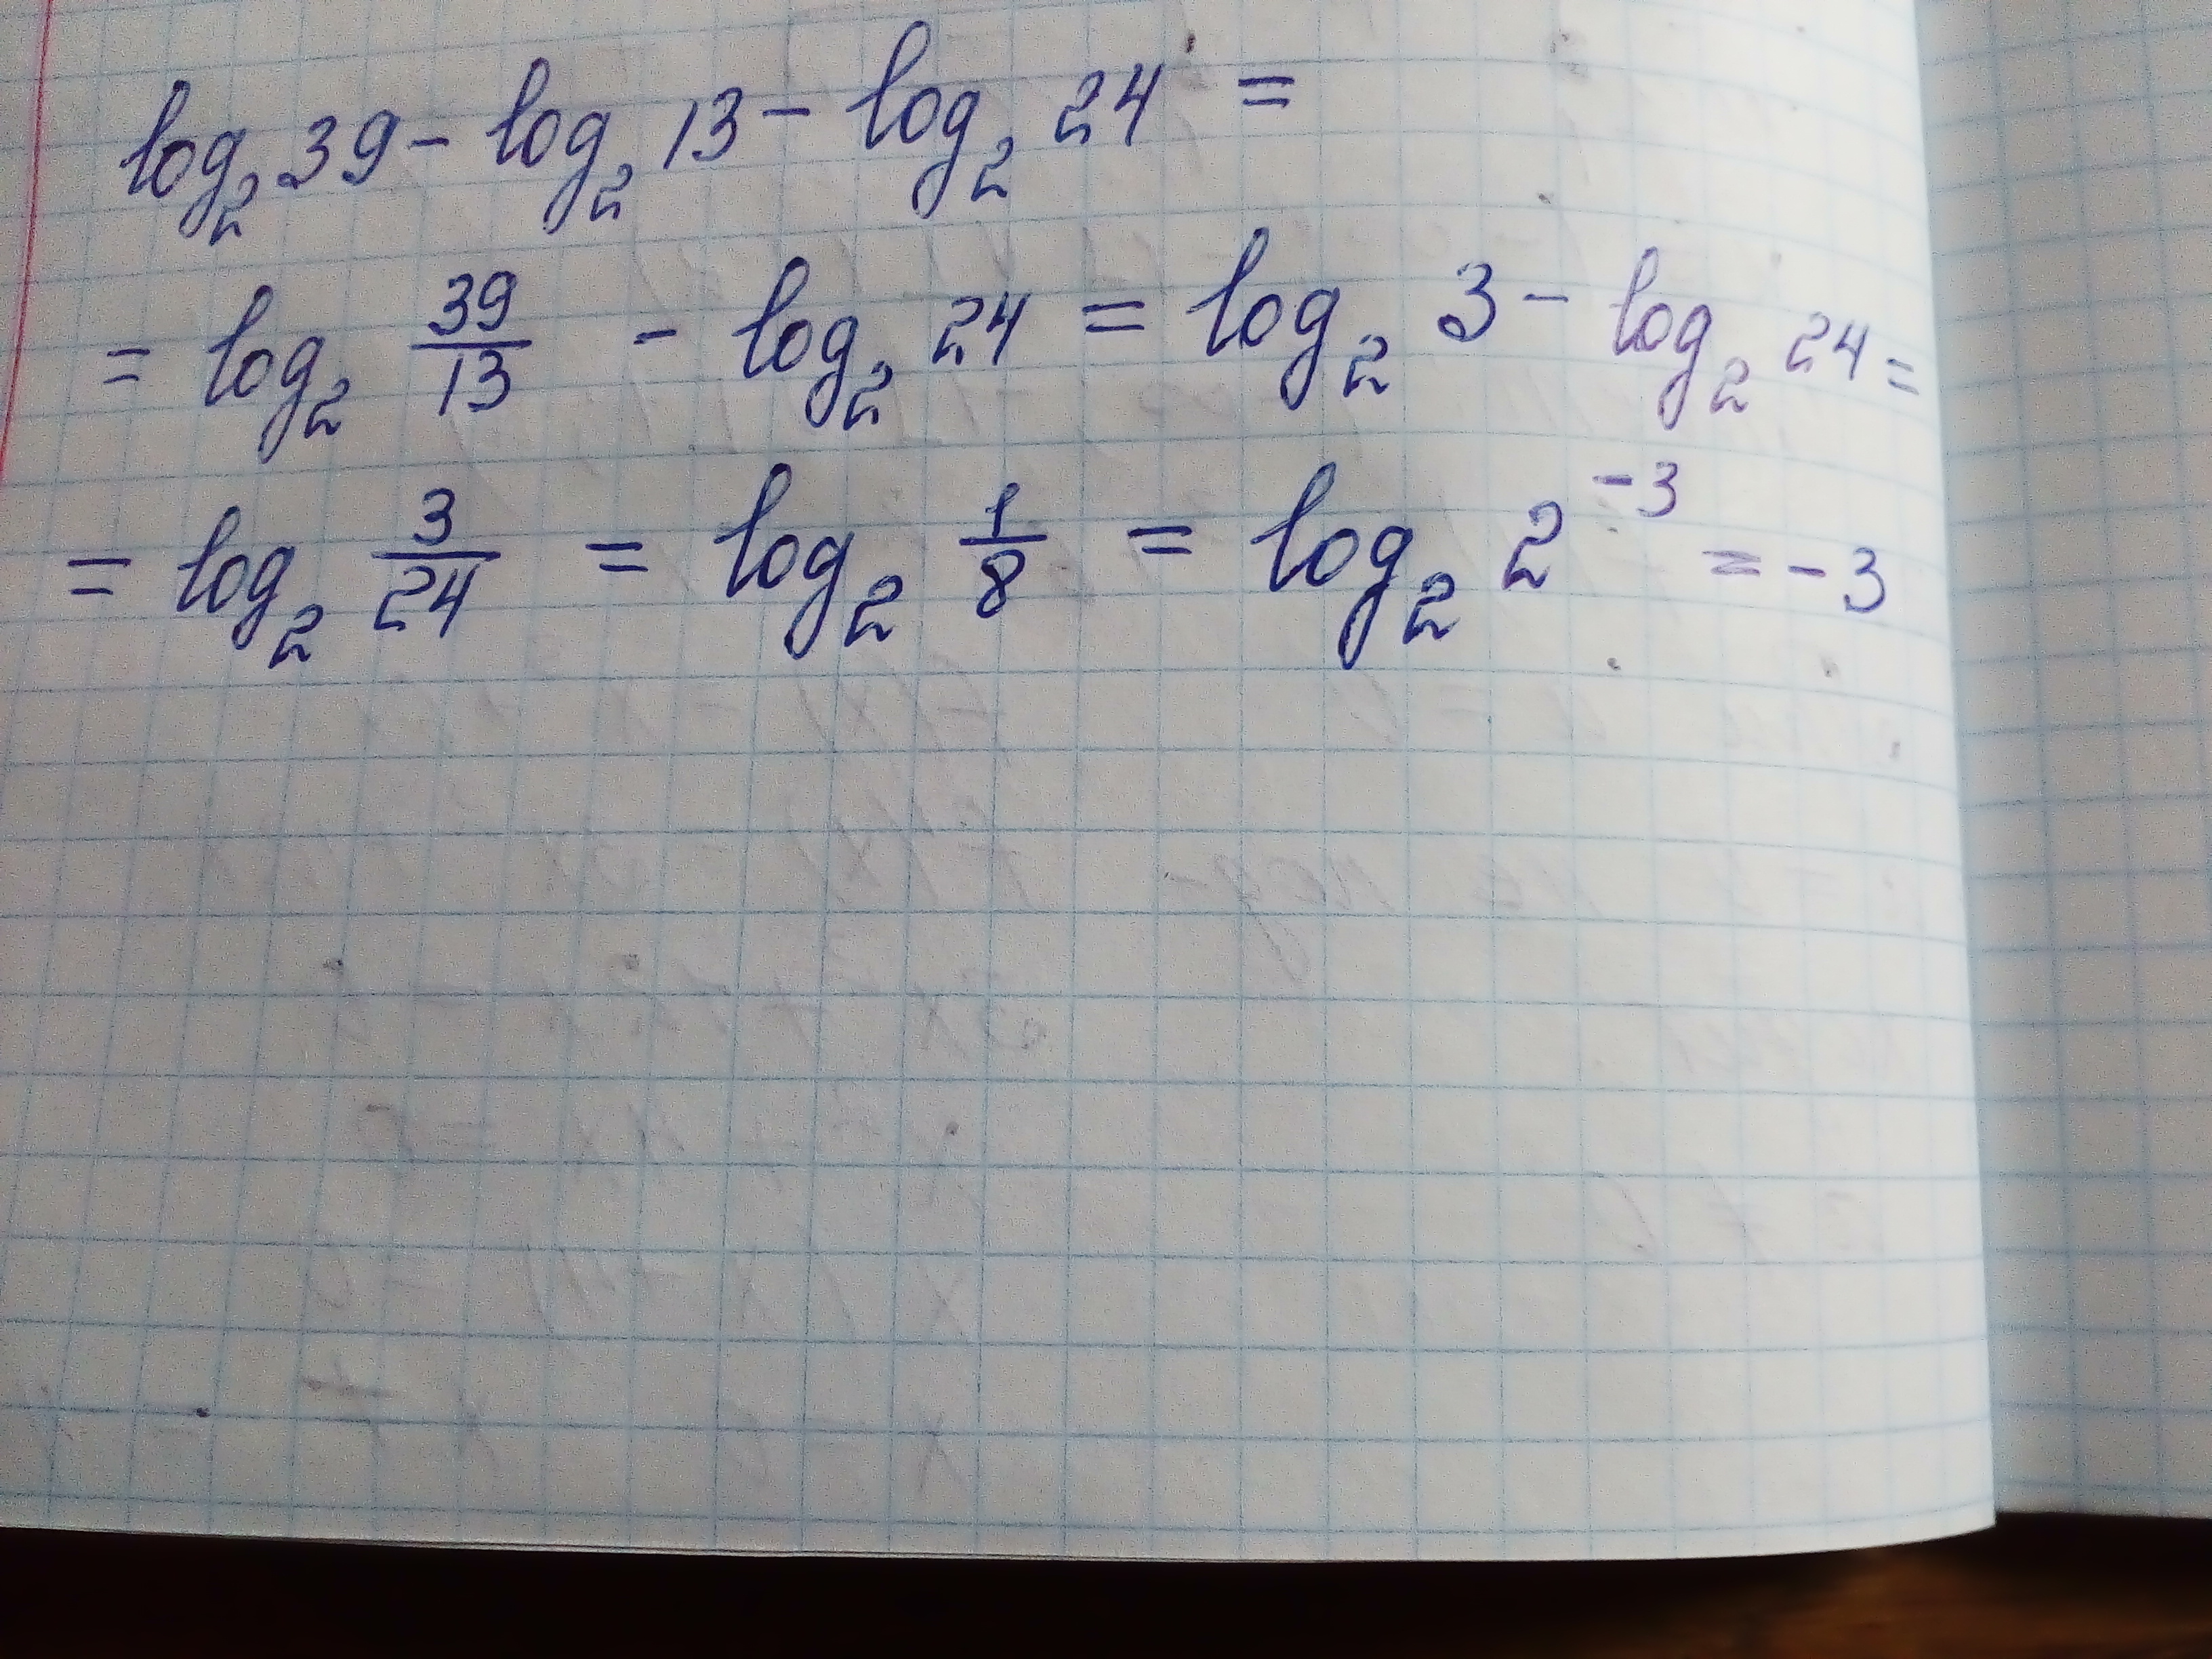 log₂ 39 - log₂ 13 - log₂ 24 =
= log₂ 39/13 - log₂ 24 = log₂ 3 - log₂ 24 =
= log₂ 3/24 = log₂ 1/8 = log₂ 2⁻³ = -3